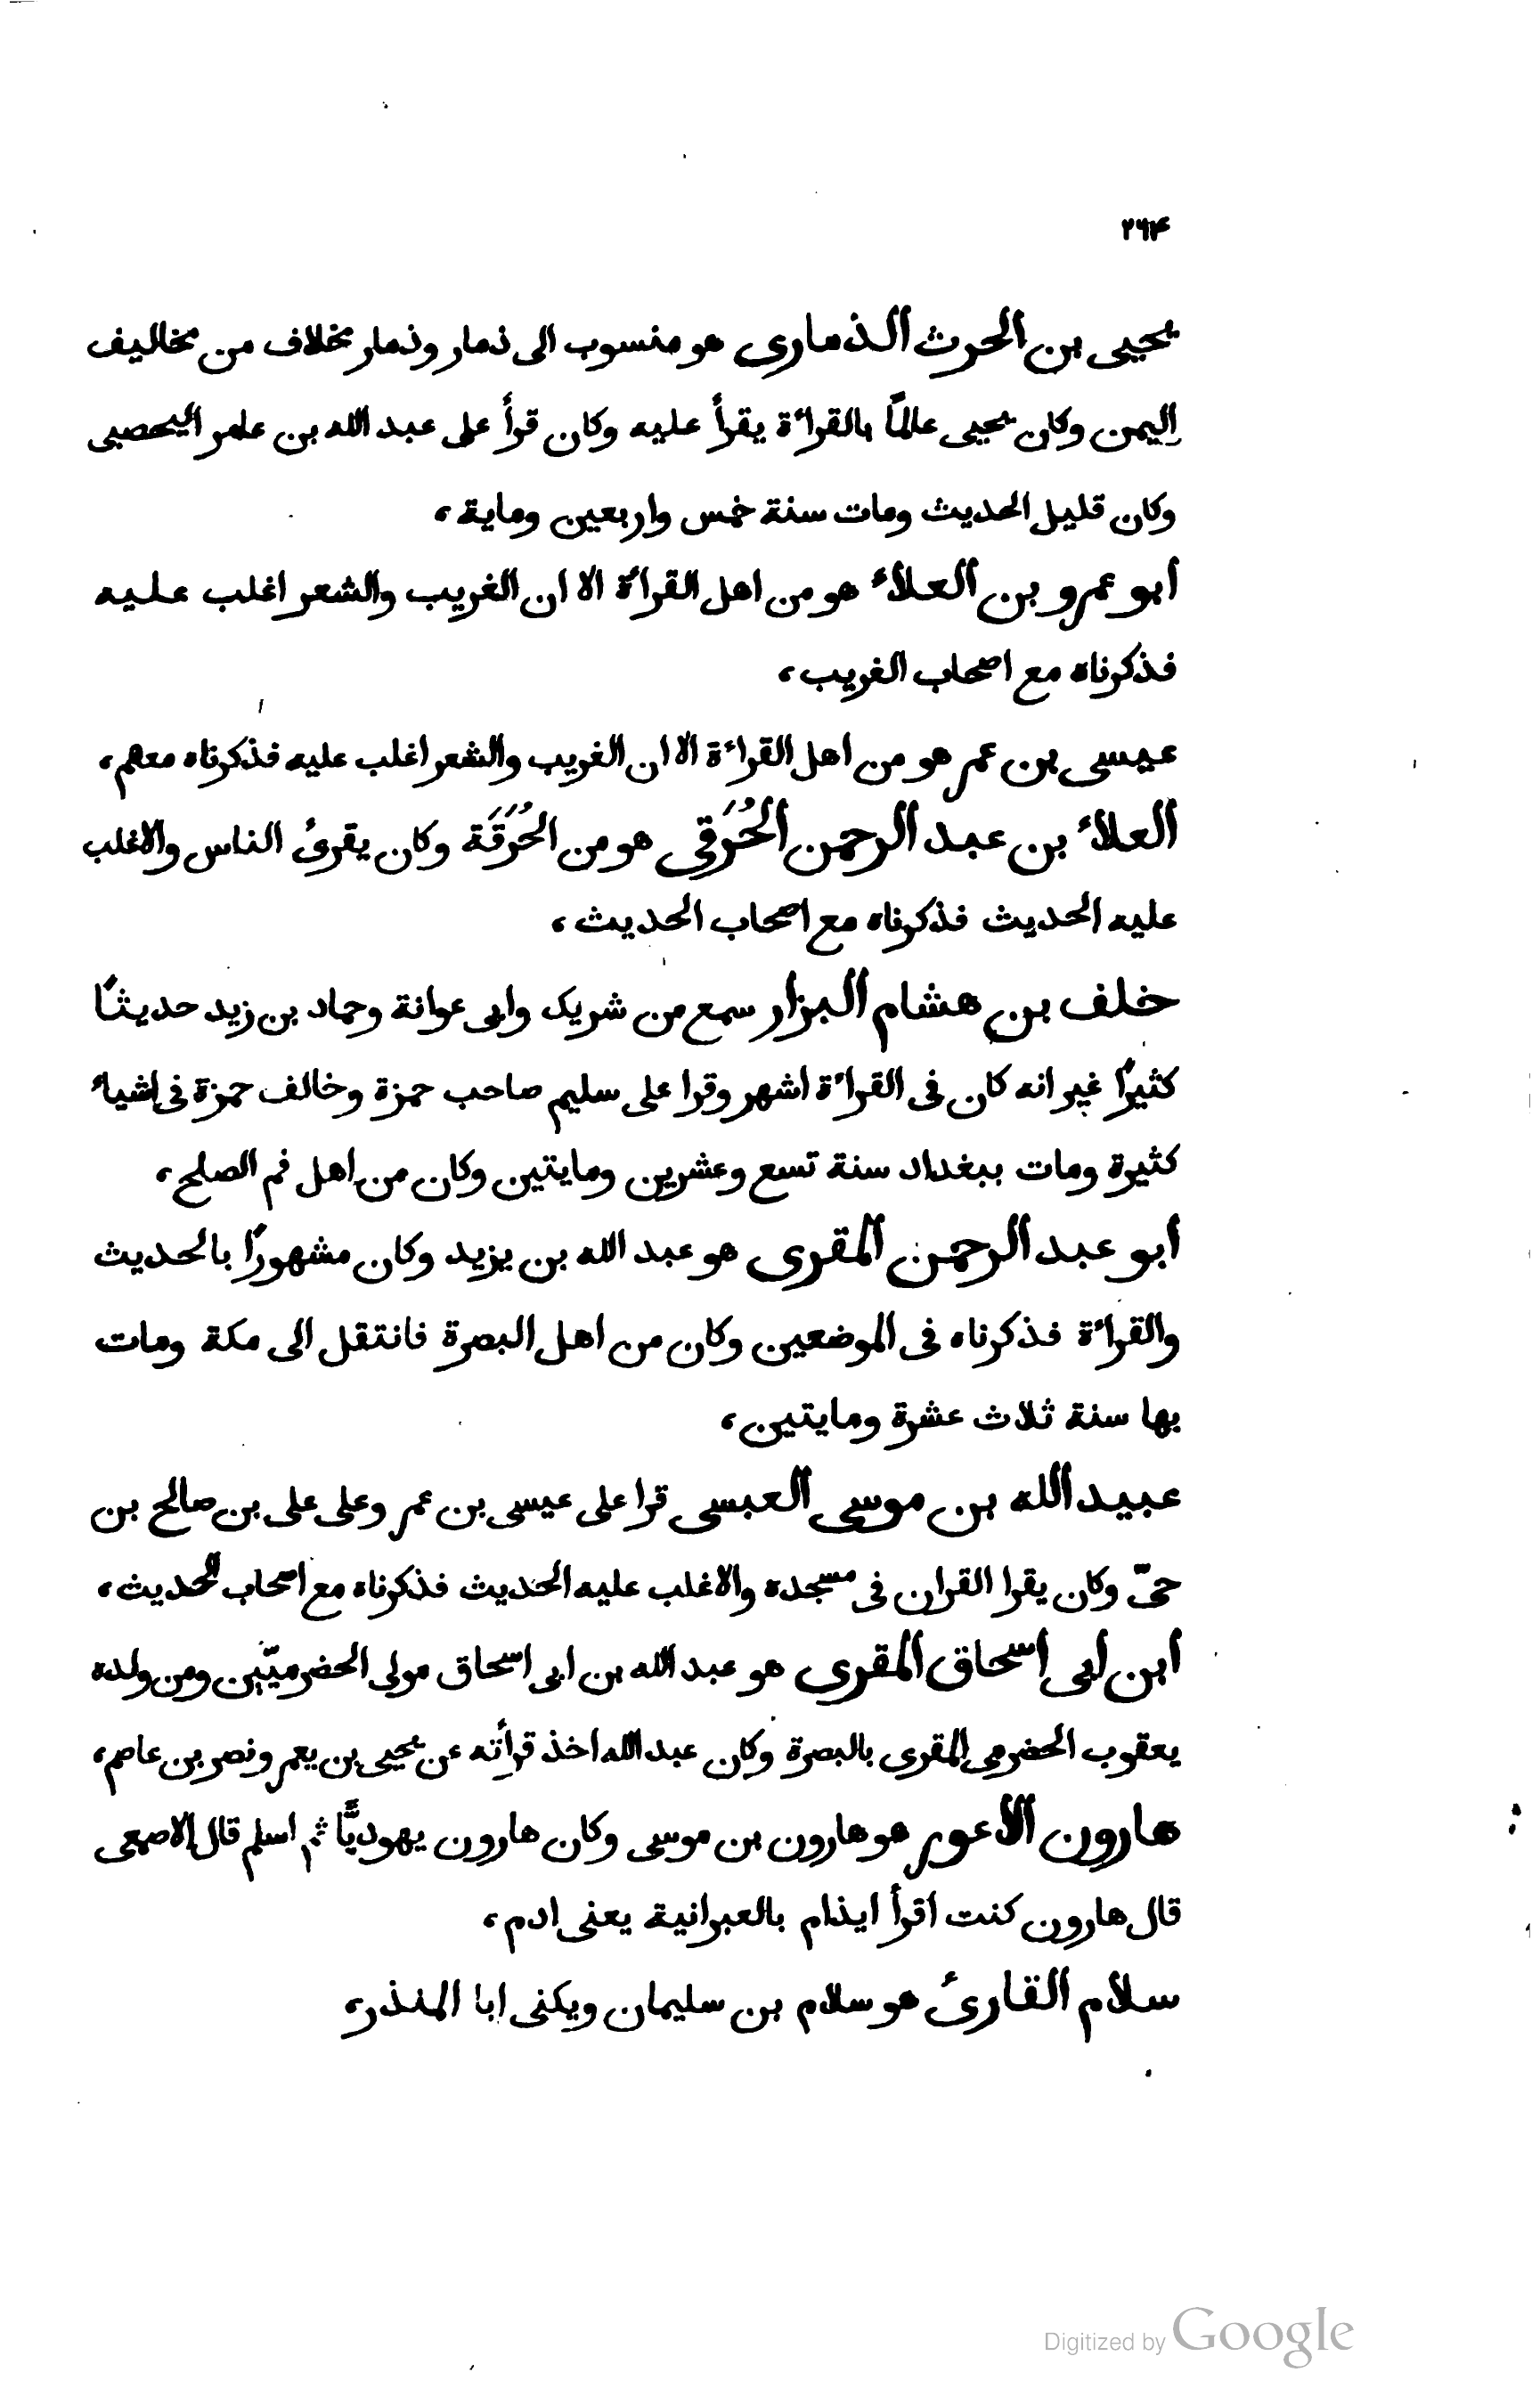 ٢٦۴
يحيى بن الحرث الذمارى هو منسوب الى ذمار وذمار مخلاف من مخاليف
اليمن وكان يحيى عالمًا بالقراءة يقرأ عليه وكان قرأ على عبد الله بن عامر اليحصبى
وكان قليل الحديث ومات سنة خمس واربعين وماية،
ابو عمرو بن العلاء هو من اهل القراءة الا ان الغريب والشعر اغلب عليه
فذكرناه مع اصحاب الغريب،
عيسى بن عمر هو من اهل القراءة الا ان الغريب والشعر اغلب عليه فذكرناه معهم،
العلاء بن عبد الرحمن الحُرَقى هو من الحُرَقَة وكان يقرئ الناس والاغلب
عليه الحديث فذكرناه مع اصحاب الحديث،
خلف بن هشام البزار سمع من شريك وابى عوانة وحماد بن زيد حديثًا
كثيرًا غير انه كان فى القراءة اشهر وقرا على سليم صاحب حمزة وخالف حمزة فى اشياء
كثيرة ومات ببغداد سنة تسع وعشرين ومايتين وكان من اهل فم الصلح،
ابو عبد الرحمن المقرى هو عبد الله بن يزيد وكان مشهورًا بالحديث
والقراءة فذكرناه فى الموضعين وكان من اهل البصرة فانتقل الى مكة ومات
بها سنة ثلاث عشرة ومايتين،
عبيد الله بن موسى العبسى قرا على عيسى بن عمر وعلى على بن صالح بن
حىّ وكان يقرا القران فى مسجده والاغلب عليه الحديث فذكرناه مع اصحاب الحديث،
ابن ابى اسحاق المقرى هو عبد الله بن ابى اسحاق مولى الحضرميّين ومن ولده
يعقوب الحضرمى المقرى بالبصرة وكان عبد الله اخذ قرأته عن يحيى بن يعمر ونصر بن عاصم،
هارون الاعور هو هارون بن موسى وكان هارون يهوديًّا ثم اسلم قال الاصمعى
قال هارون كنت اقرأ ايذام بالعبرانية يعنى ادم،
سلام القارئ هو سلام بن سليمان ويكنى ابا المنذر،
Digitized by Google